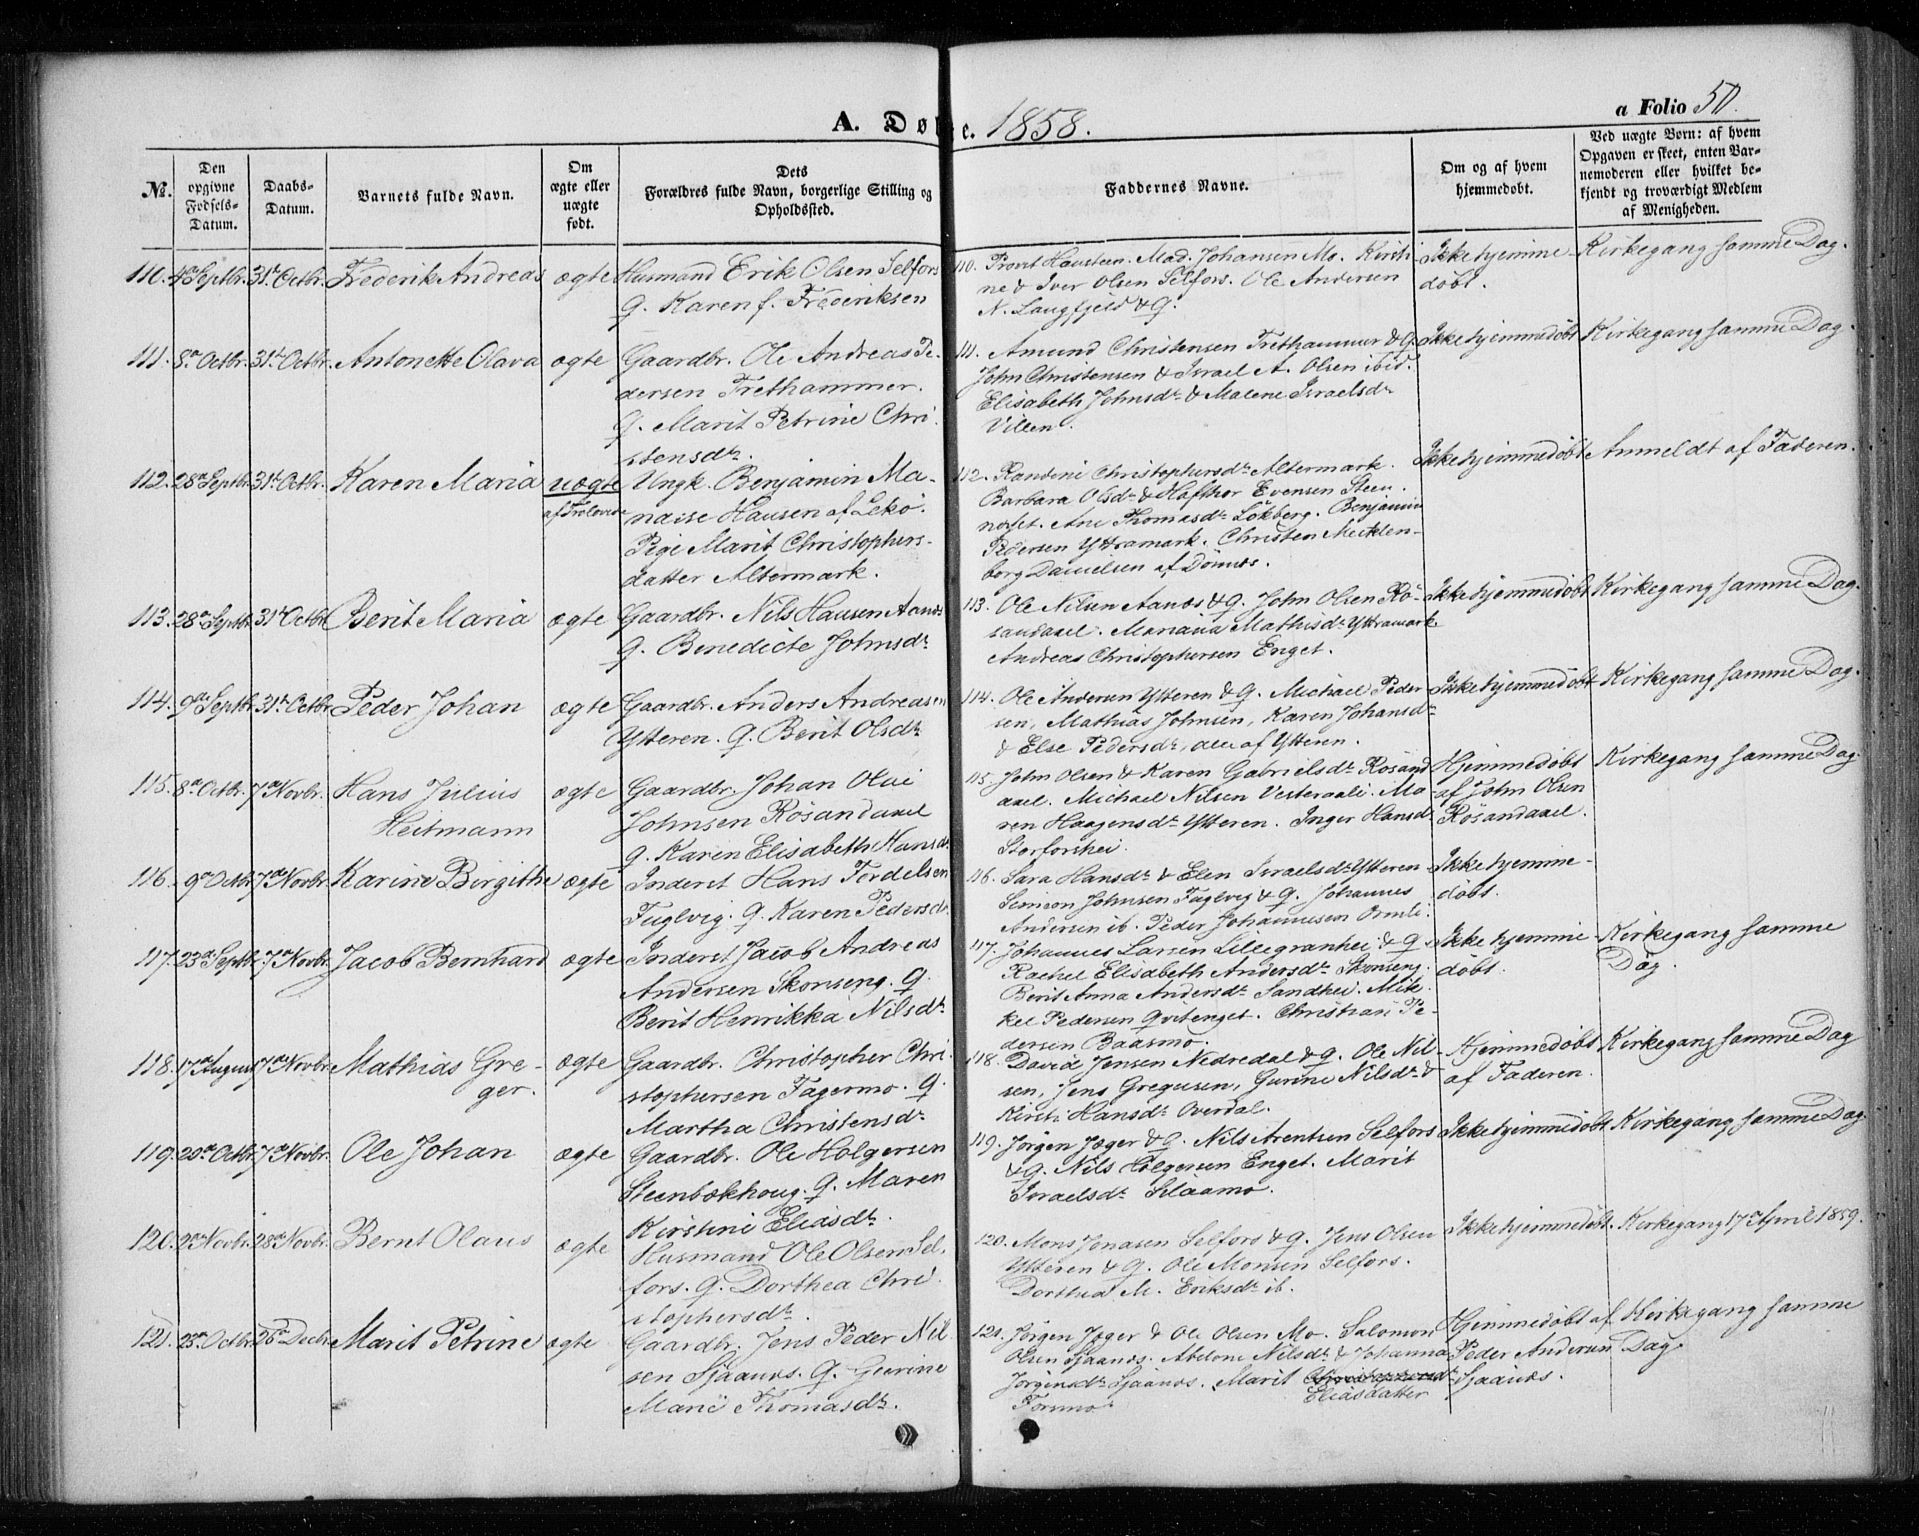 A. Døbte. 1858.
a Folio 50.
№.
Den opgivne Fødsels-Datum.
Daabs-Datum.
Barnets fulde Navn.
Om ægte eller uægte født.
Dets Forældres fulde Navn, borgerlige Stilling og Opholdssted.
Faddernes Navne.
Om og af hvem hjemmedøbt.
Ved uægte Børn: af hvem Opgaven er skeet, enten Barnemoderen eller hvilket bekjendt og troværdigt Medlem af Menigheden.
110. 4de Septbr. 31te Octbr. Frederik Andreas ægte
Husmand Erik Olsen Selfors
G. Karen f. Frederiksen
110. Provst Hausteen. Mad. Johansen Mo. Kirsti-
ne & Iver Olsen Selfors. Ole Andersen
N. Laugfjeld & G.
Ikke hjemme-
døbt.
Kirkegang samme Dag.
111. 8de Octbr. 31te Octbr. Antonette Olava ægte
Gaardbr. Ole Andreas Pe-
dersen Trethammer.
G. Marit Petrine Chri-
stensdtr.
111. Amund Christensen Trethammer & G.
John Christensen & Israel A. Olsen ibid.
Elisabeth Johnsdtr & Malene Israelsdtr
Villen.
Ikke hjemmedøbt
Kirkegang samme Dag.
112. 28de Septbr. 31te Octbr. Karen Maria uægte
af Trolovede
Ungk. Benjamin Ma-
nasse Hansen af Lekø.
Pige Marit Christophers-
datter Altermark.
112. Randine Christophersdtr Altermark.
Barbara Olsdtr & Hafthor Evensen Steen-
neset. Ane Thomasdtr Lökberg. Benjamin
Pedersen Yttramark. Christen Mecklen-
borg Danielsen af Dönnes.
Ikke hjemmedøbt
Anmeldt af Faderen.
113. 28de Septbr. 31te Octbr. Berit Maria ægte
Gaardbr. Nils Hansen Aanæs
G. Benedicte Johnsdtr.
113. Ole Nilsen Aanæs & G. John Olsen Rö-
sandaxel. Mariana Mathisdtr Yttramark
Andreas Christophersen Enget.
Ikke hjemmedøbt
Kirkegang samme Dag.
114. 9de Septbr. 31te Octbr. Peder Johan ægte
Gaardbr. Anders Andreasen
Ytteren. G. Berit Olsdtr
114. Ole Andersen Ytteren & G. Michael Peder
sen, Mathias Johnsen, Karen Johansdtr
& Else Pedersdtr, alle af Ytteren.
Ikke hjemmedøbt
Kirkegang samme Dag.
115. 8de Octbr. 7de Novbr. Hans Julius
Heitmann
ægte
Gaardbr. Johan Olai
Johnsen Rösandaxel
G. Karen Elisabeth Hansdtr
115. John Olsen & Karen Gabrielsdtr Rösand
axel. Michael Nilsen Vesteraali. Ma-
ren Haagensdtr Ytteren. Inger Hansdtr
Storforshei.
Hjemmedøbt
af John Olsen
Rösandaxel.
Kirkegang samme Dag.
116. 9de Octbr. 7de Novbr. Karine Birgithe ægte
Inderst Hans Tordelsen
Fuglvig. G. Karen Pedersdtr.
116. Sara Hansdtr & Elen Israelsdtr Ytteren
Semeon Johnsen Fuglvig & G. Johannes
Andersen ib. Peder Johannesen Ormli.
Ikke hjemme-
døbt.
117. 23de Septbr. 7de Novbr. Jacob Bernhard ægte
Inderst Jacob Andreas
Andersen Skonseng. G.
Berit Henrikka Nilsdtr.
117. Johannes Larsen Lillegranhei & G.
Rachel Elisabeth Andersdtr Skonseng.
Berit Anna Andersdtr Sandhei. Mik-
kel Pedersen Qvitenget. Christian Pe-
dersen Baasmo.
Ikke hjemme-
døbt.
Kirkegang samme
Dag.
118. 17de August 7de Novbr. Mathias Gre-
ger.
ægte
Gaardbr. Christopher Chri-
stophersen Fagermo. G.
Martha Christensdtr
118. David Jensen Nedredal & G. Ole Nil-
sen, Jens Gregusen, Gurine Nilsdtr &
Kirsti Hansdtr Overdal.
Hjemmedøbt
af Faderen.
Kirkegang samme Dag
119. 20de Octbr. 7de Novbr. Ole Johan ægte
Gaardbr. Ole Holgersen
Steenbækhoug. G. Maren
Kirstine Eliasdtr.
119. Jörgen Jæger & G. Nils Arentsen Selfors
& G. Nils Holgersen Enget. Marit
Israelsdtr Slaamo.
Ikke hjemmedøbt.
Kirkegang samme Dag.
120. 2de Novbr. 28de Novbr. Bernt Olaus ægte
Husmand Ole Olsen Sel-
fors. G. Dorthea Chri-
stophersdtr.
120. Mons Jonasen Selfors & G. Jens Olsen
Ytteren & G. Ole Monsen Selfors.
Dorthea M. Eriksdtr ib.
Ikke hjemmedøbt.
Kirkegang 17de April 1859.
121. 25de Octbr. 26de Decbr. Marit Petrine ægte
Gaardbr. Jens Peder Nil-
sen Sjaanæs. G. Gurine
Marie Thomasdtr.
121. Jörgen Jæger & Ole Olsen Mo. Salomon
Olsen Sjaanæs. Abelone Nilsdtr & Johanna
Jörgensdtr Sjaanæs. Marit Christophersdtr
Eliasdatter
Forsmo.
Hjemmedøbt af
Peder Andersen
Sjaanæs.
Kirkegang samme
Dag.